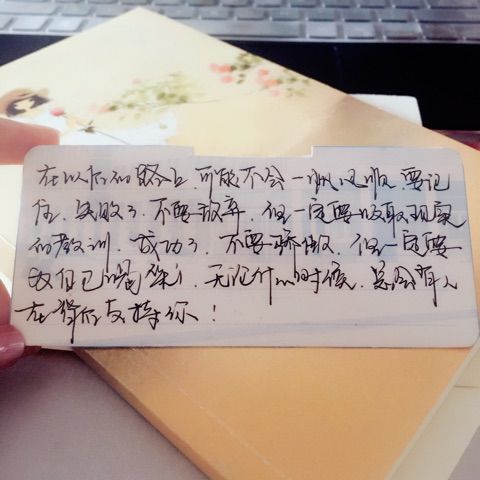 在以后的路上，可能不会一帆风顺，要记
住，失败了，不要放弃，但一定要吸取现实
的教训，成功了，不要骄傲，但一定要
对自己喝采！无论什么时候，总会有人
在背后支持你！